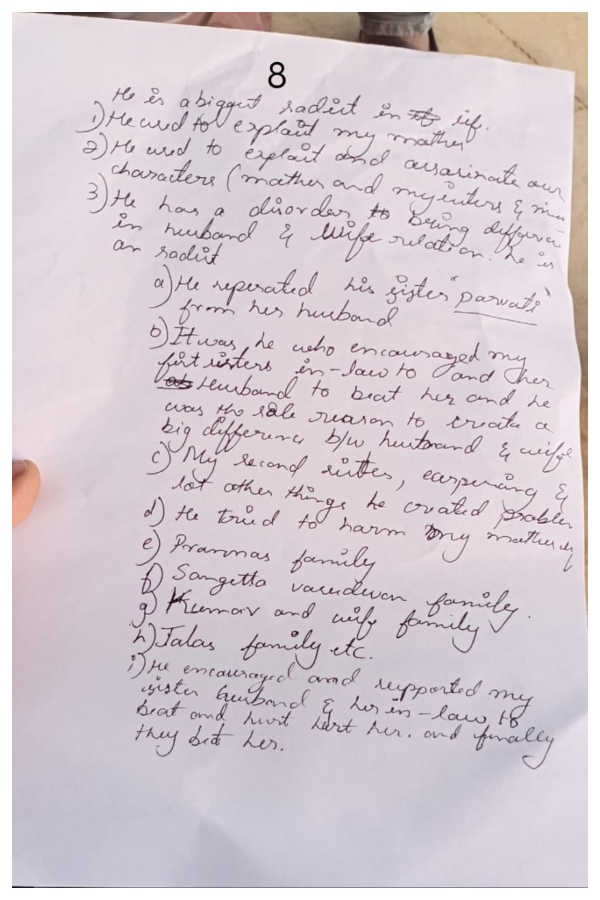 8
He is a biggest sadist in life.
1) He used to exploit my mother
2) He used to exploit and assasinate our
characters (mother and my sisters &
3) He has a disorder to being
in husband & wife relation. he is
an sadist
a) He seperated his sister "parvati"
from her husband
b) It was he who encouraged my
first sisters in-law to and her
Husband to beat her and he
was the sole reason to create a
big difference b/w husband & wife
c) My second sister, &
lot other things he created problem
d) He tried to harm my mother
e) Prammas family
f) Sangetta vasudwan family.
g) Kumar and wife family
h) Jalas family etc.
i) He encouraged and supported my
sister husband & her in-law, to
beat and hurt hurt her. and finally
they bet her.